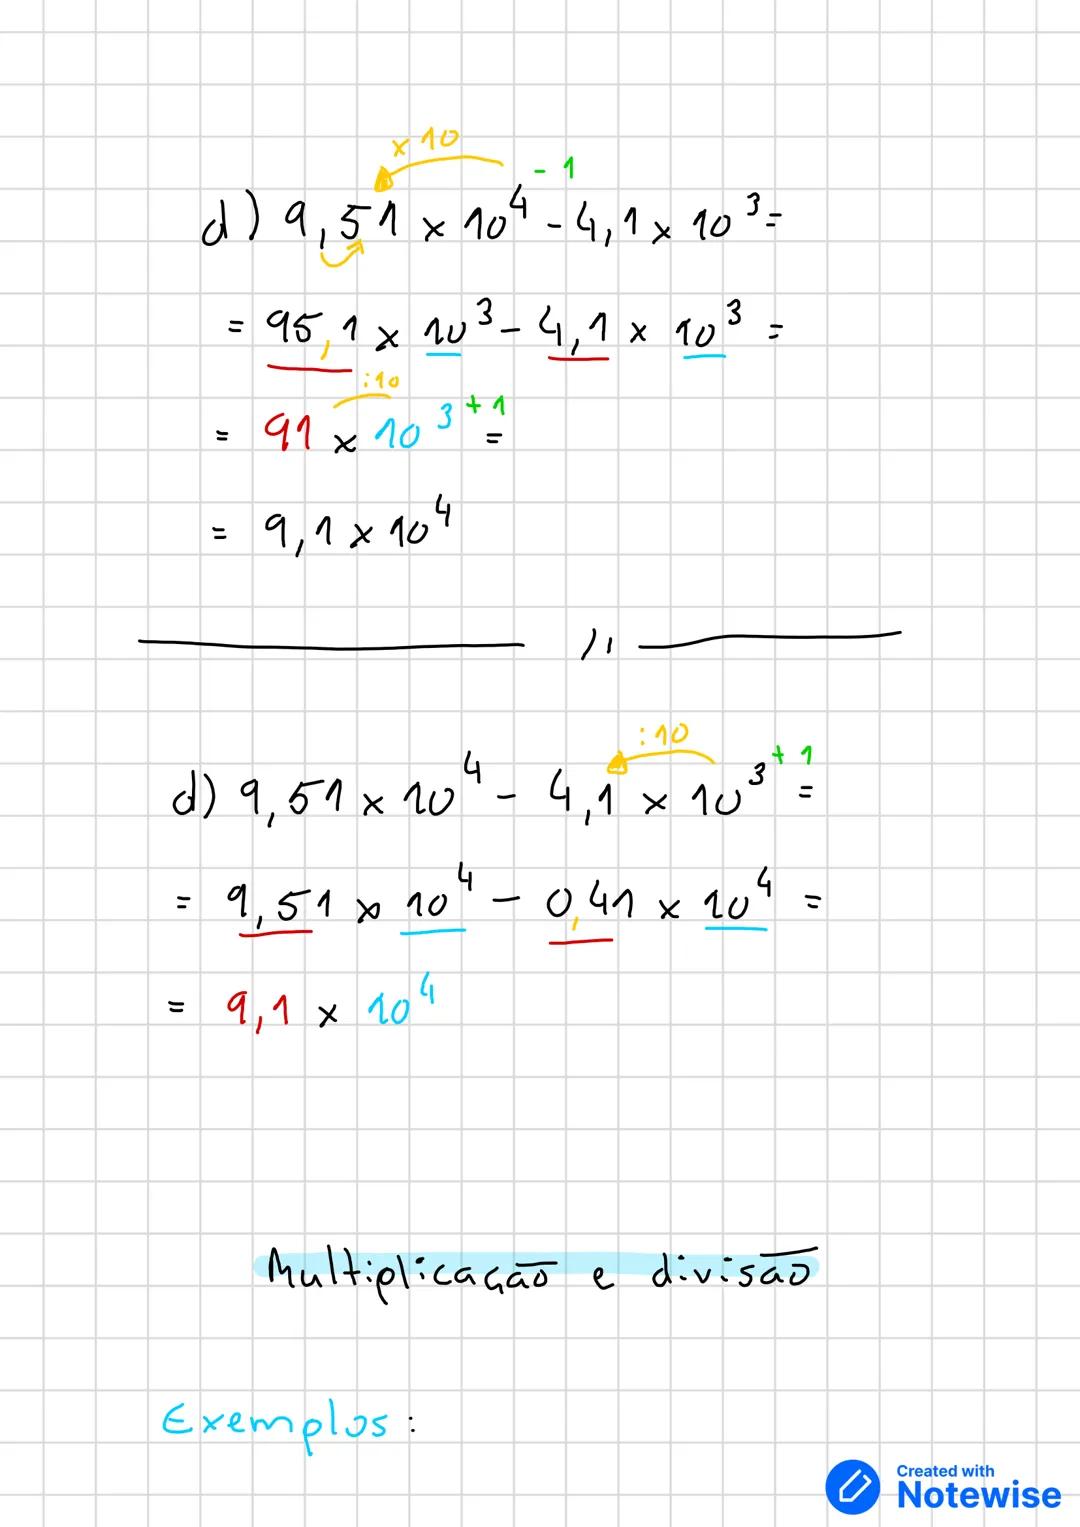 × 10
- 1
d) 9,51 × 10⁴ - 4,1 × 10³ =
= 95,1 × 10³ - 4,1 × 10³ =
:10
= 91 × 10³ + 1 =
= 9,1 × 10⁴
//
:10
+ 1
d) 9,51 × 10⁴ - 4,1 × 10³ =
= 9,51 × 10⁴ - 0,41 × 10⁴ =
= 9,1 × 10⁴
Multiplicação e divisão
Exemplos:
Created with
Notewise